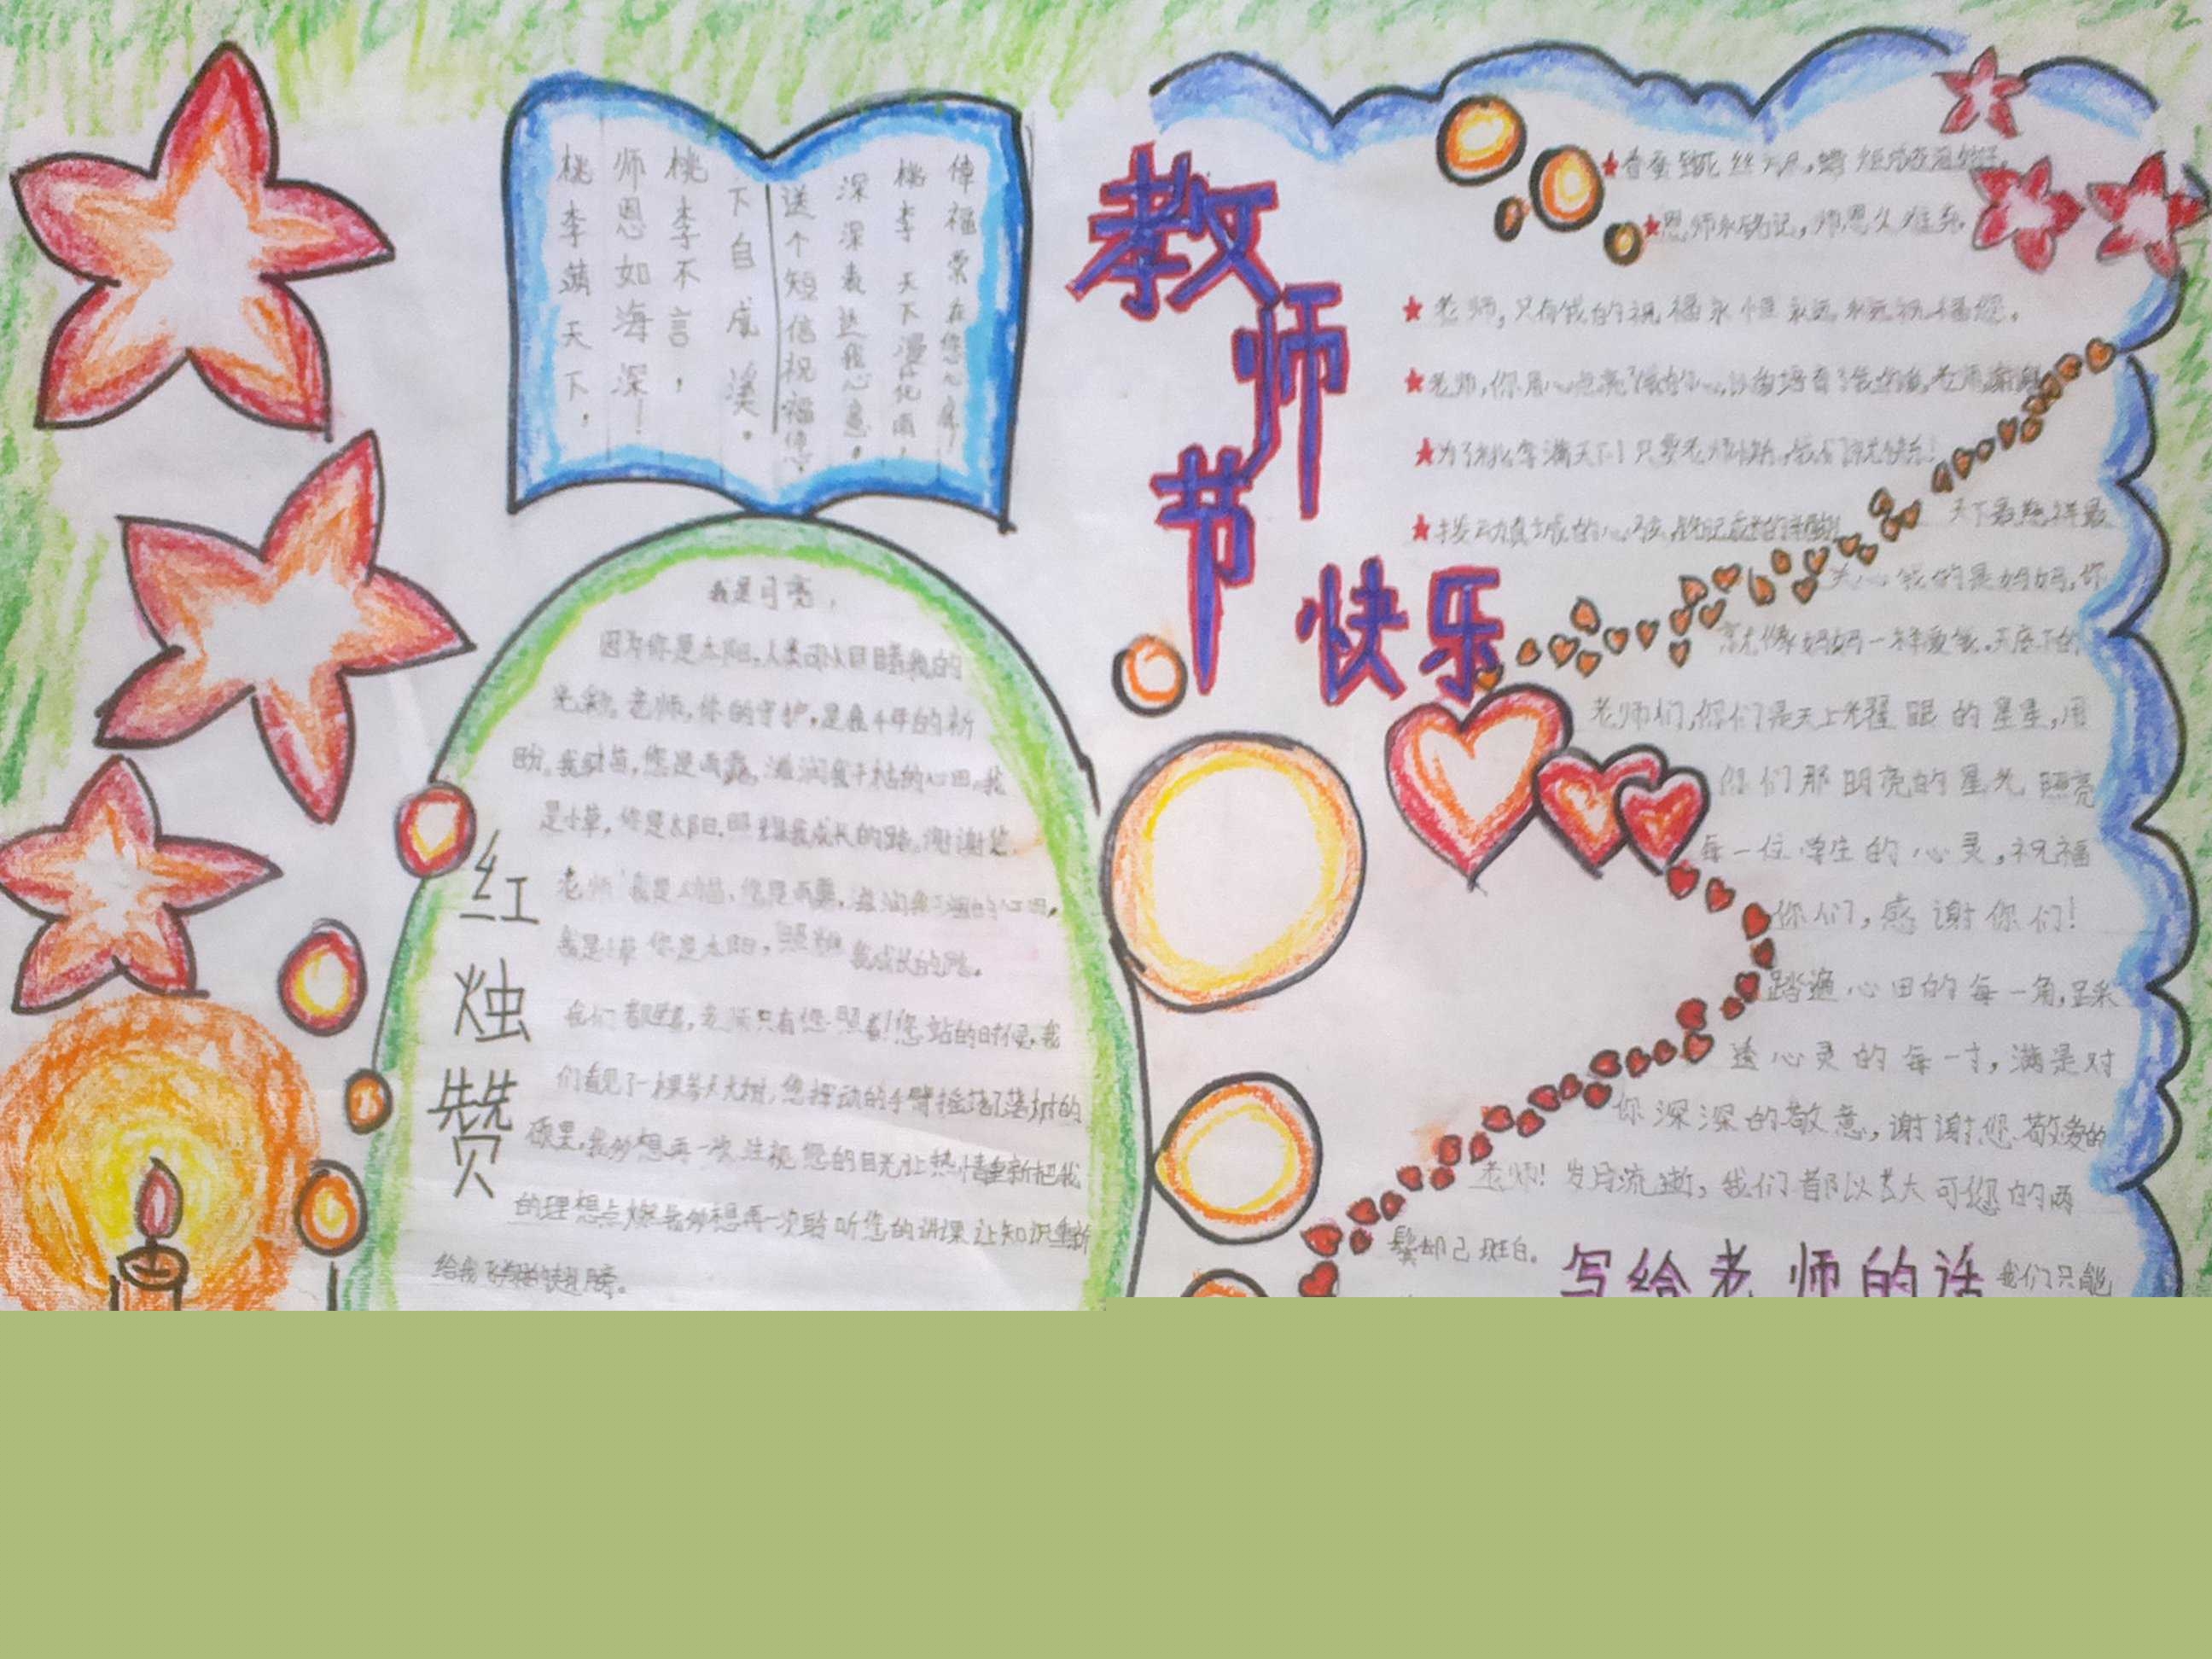 桃李满天下，
师恩如海深！
桃李不言，
下自成溪。
送个短信祝福您，
深深表达我心意。
桃李天下漫化雨，
福常在您心扉！
教师节快乐
恩师永铭记，师恩久难忘。
老师，只有我的祝福永恒永远永远祝福您。
老师，你用心点亮了我的心，
天下最慈祥最
关心我的是妈妈，你
就像妈妈一样爱我。天底下的
老师们，你们是天上光耀眼的星星，用
你们那明亮的星光照亮
每一位学生的心灵，祝福
你们，感谢你们！
踏遍心田的每一角，踩
透心灵的每一寸，满是对
你深深的敬意，谢谢您敬爱的
老师！岁月流逝，我们都以长大可您的两
鬓却已斑白。
写给老师的话
我们只能
红烛赞
我是月亮，
因为你是太阳，人类可以目睹我的
光彩。老师，你的守护，是我千年的祈
盼。我是苗，您是雨露，滋润我干枯的心田。我
是小草，你是太阳，照耀我成长的路。谢谢您，
老师！我是幼苗，您是雨露，滋润我干涸的心田，
我是小草你是太阳，照耀我成长的路。
我们都睡着，老师只有您照着！您站的时候，我
们看见了一棵参天大树，您挥动的手臂摇落了满树的
硕果，我多想再一次注视您的目光让热情重新把我
的理想点燃我多想再一次聆听您的讲课让知识重新
给我飞翔的翅膀。